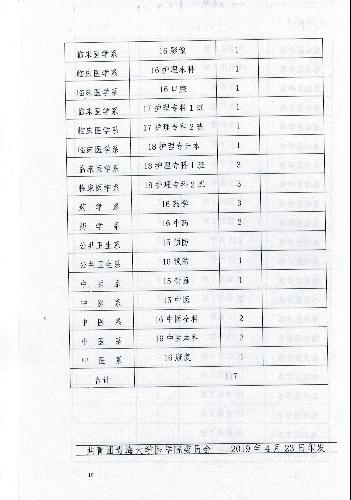 临床医学系 16影像 1
临床医学系 16护理本科 1
临床医学系 16口腔 1
临床医学系 17护理专科1班 1
临床医学系 17护理专科2班 1
临床医学系 18护理专升本 1
临床医学系 18护理专科1班 3
临床医学系 18护理专科2班 3
药 学 系 16药学 3
药 学 系 16中药 2
公共卫生系 15预防
公共卫生系 16预防 1
中 医 系 15针推 1
中 医 系 15中医
中 医 系 16中医全科 2
中 医 系 16中医本科 2
中 医 系 16康复 1
合计 117
共青团青海大学医学院委员会 2019年4月23日印发
10